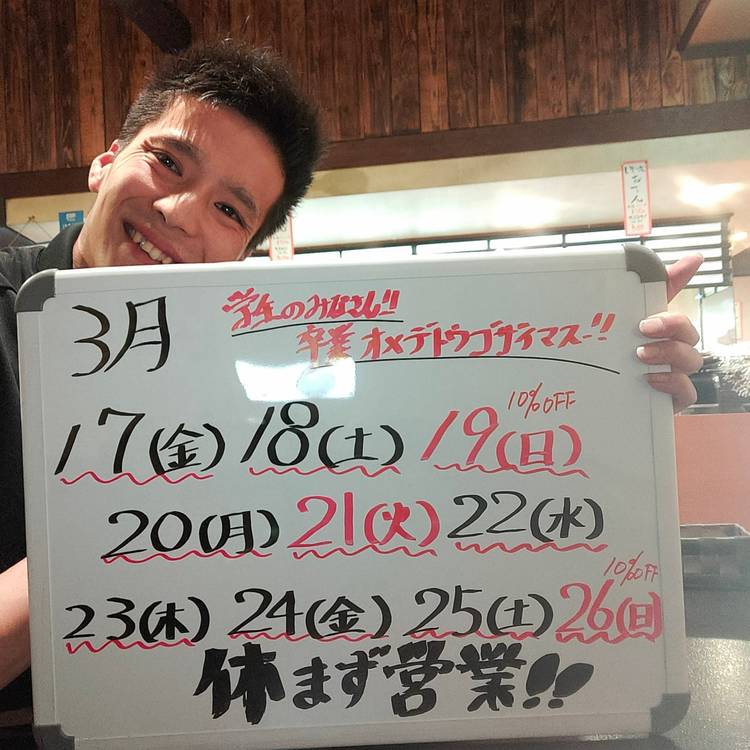 3月
学生のみなさん!!
卒業オメデトウゴザイマスー!!
17(金) 18(土) 19(日) 10%OFF
20(月) 21(火) 22(水)
23(木) 24(金) 25(土) 26(日) 10%OFF
休まず営業!!
おでん